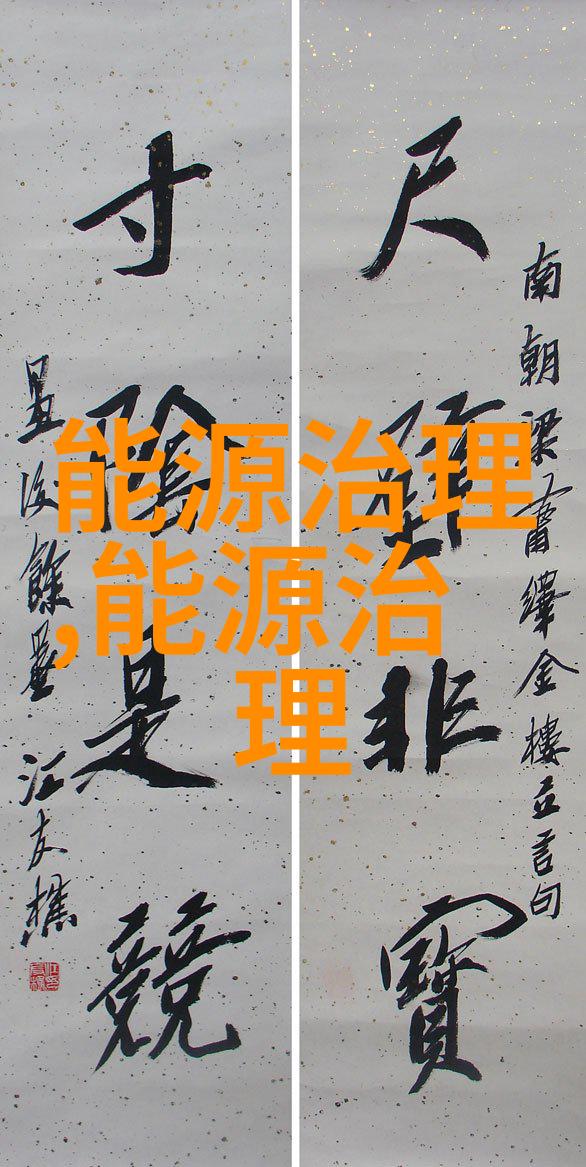 南朝梁蕭繹金樓立言句
尺璧非寶
寸陰是競
餘墨 江友樵
能源治理
,能源治
理